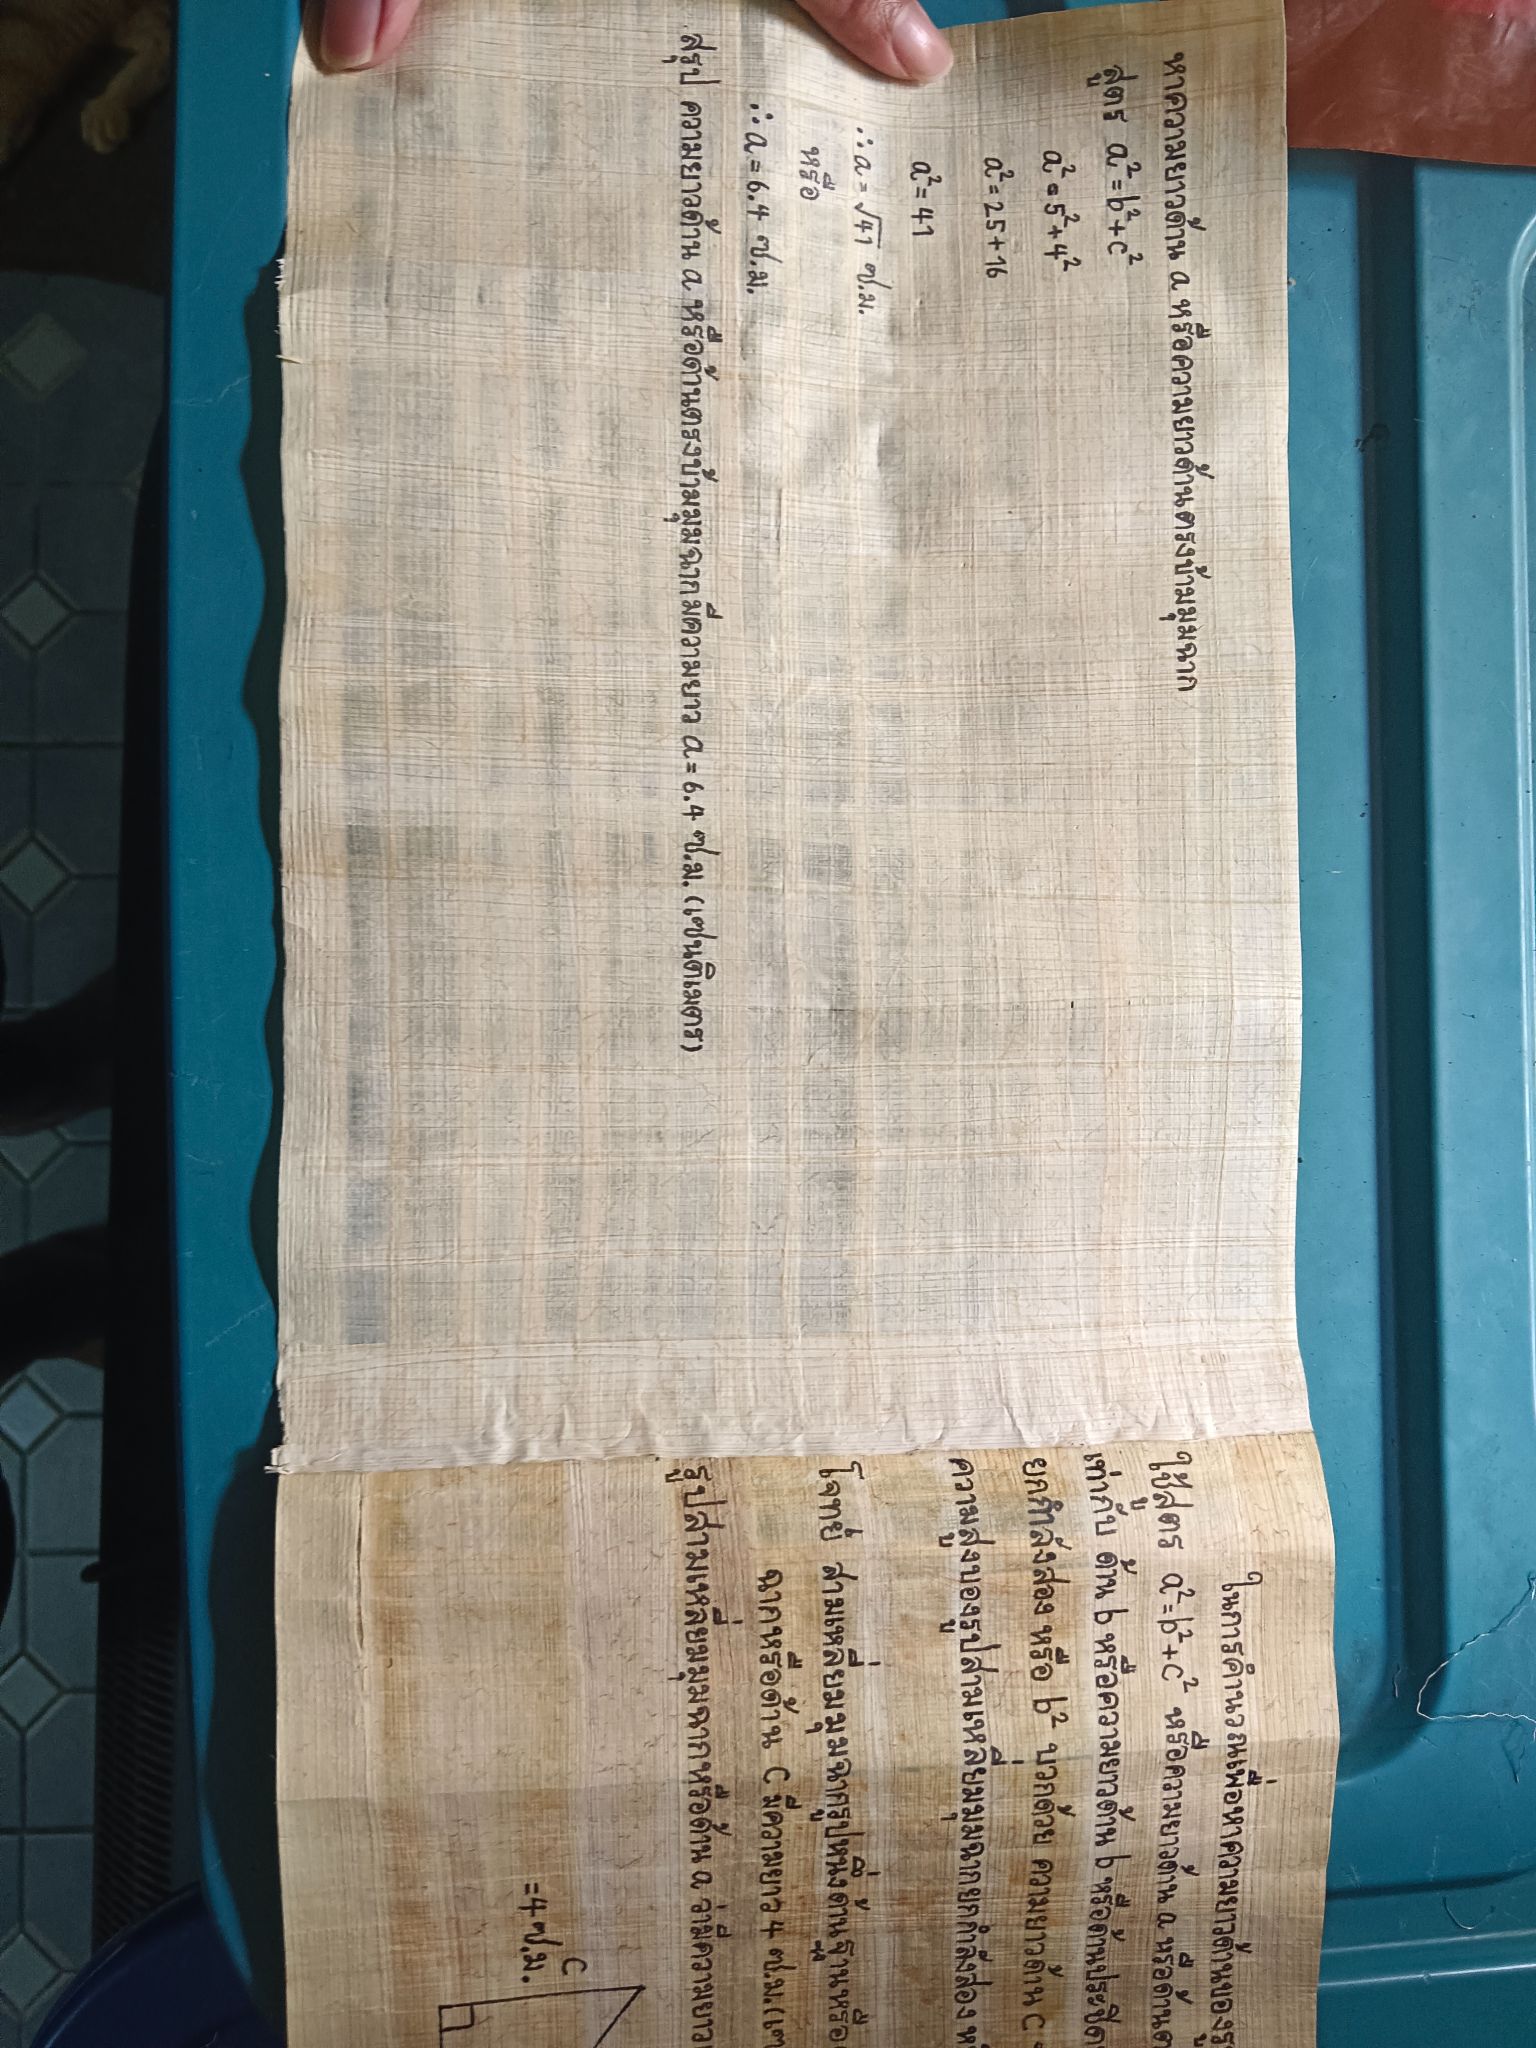 หาความยาวด้าน a หรือความยาวด้านตรงข้ามมุมฉาก
สูตร a² = b² + c²
a² = 5² + 4²
a² = 25 + 16
a² = 41
∴ a = √41 ซ.ม.
หรือ
∴ a = 6.4 ซ.ม.
สรุป ความยาวด้าน a หรือด้านตรงข้ามมุมฉากมีความยาว a = 6.4 ซ.ม. (เซนติเมตร)
ในการคำนวณเพื่อหาความยาวด้านของรู
ใช้สูตร a² = b² + c² หรือความยาวด้าน a หรือด้านต
เท่ากับ ด้าน b หรือความยาวด้าน b หรือด้านประชิด
ยกกำลังสอง หรือ b² บวกด้วย ความยาวด้าน c
ความสูงของรูปสามเหลี่ยมมุมฉากยกกำลังสอง ห
โจทย์ สามเหลี่ยมมุมฉากรูปหนึ่งด้านฐานหรือ
ฉากหรือด้าน c มีความยาว 4 ซ.ม. (เซ
รูปสามเหลี่ยมมุมฉากหรือด้าน a จะมีความยาว
c
= 4 ซ.ม.